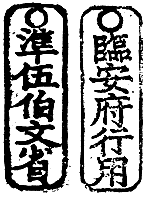 臨安府行用
準伍伯文省